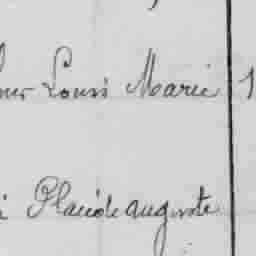 Louis Marie 1
Placide auguste